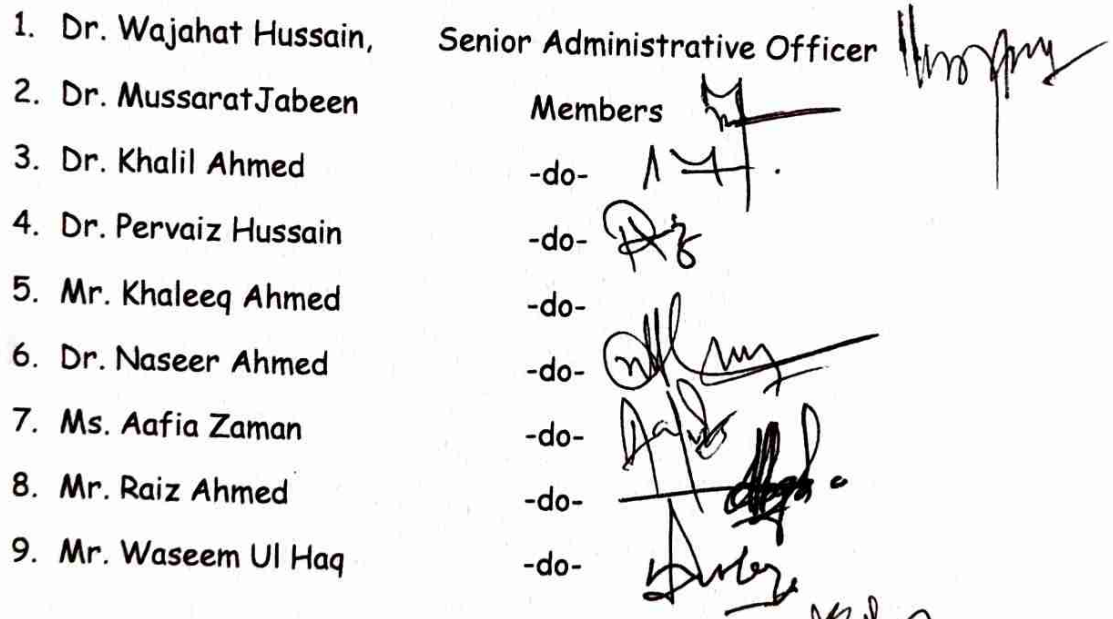 1. Dr. Wajahat Hussain, Senior Administrative Officer
2. Dr. MussaratJabeen Members
3. Dr. Khalil Ahmed -do-
4. Dr. Pervaiz Hussain -do-
5. Mr. Khaleeq Ahmed -do-
6. Dr. Naseer Ahmed -do-
7. Ms. Aafia Zaman -do-
8. Mr. Raiz Ahmed -do-
9. Mr. Waseem Ul Haq -do-